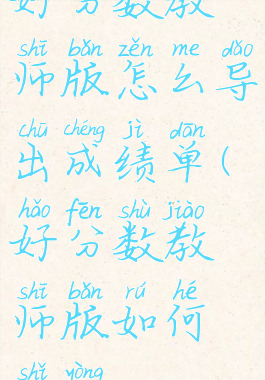 好分数教
shī bǎn zěn me dǎo
师版怎么导
chū chéng jì dān
出成绩单(
hǎo fēn shù jiào
好分数教
shī bǎn rú hé
师版如何
shǐ yòng